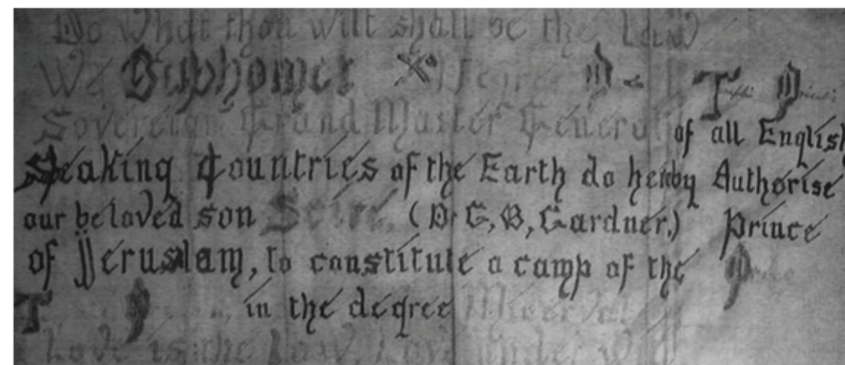 Do what thou wilt shall be the Law
We Baphomet X° Degree
Sovereign Grand Master General of all English
Speaking Countries of the Earth do hereby Authorise
our beloved son Scire, (Dr G, B, Gardner,) Prince
of Jeruslam, to constitute a camp of the
in the degree Minerval
Love is the Law, Love under will